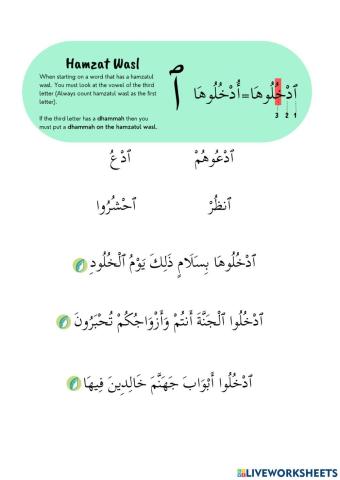 Hamzat Wasl
When starting on a word that has a hamzatul
wasl. You must look at the vowel of the third
letter (Always count hamzatul wasl as the first
letter).
If the third letter has a dhammah then you
must put a dhammah on the hamzatul wasl.
ٱ
ٱدْخُلُوهَا=أُدْخُلُوهَا
3 2 1
ٱدْعُوهُمْ ٱدْعُ
ٱنظُرْ ٱحْشُرُوا
ٱدْخُلُوهَا بِسَلَامٍ ذَلِكَ يَوْمُ ٱلْخُلُودِ
ٱدْخُلُوا ٱلْجَنَّةَ أَنتُمْ وَأَزْوَاجُكُمْ تُحْبَرُونَ
ٱدْخُلُوا أَبْوَابَ جَهَنَّمَ خَالِدِينَ فِيهَا
LIVEWORKSHEETS